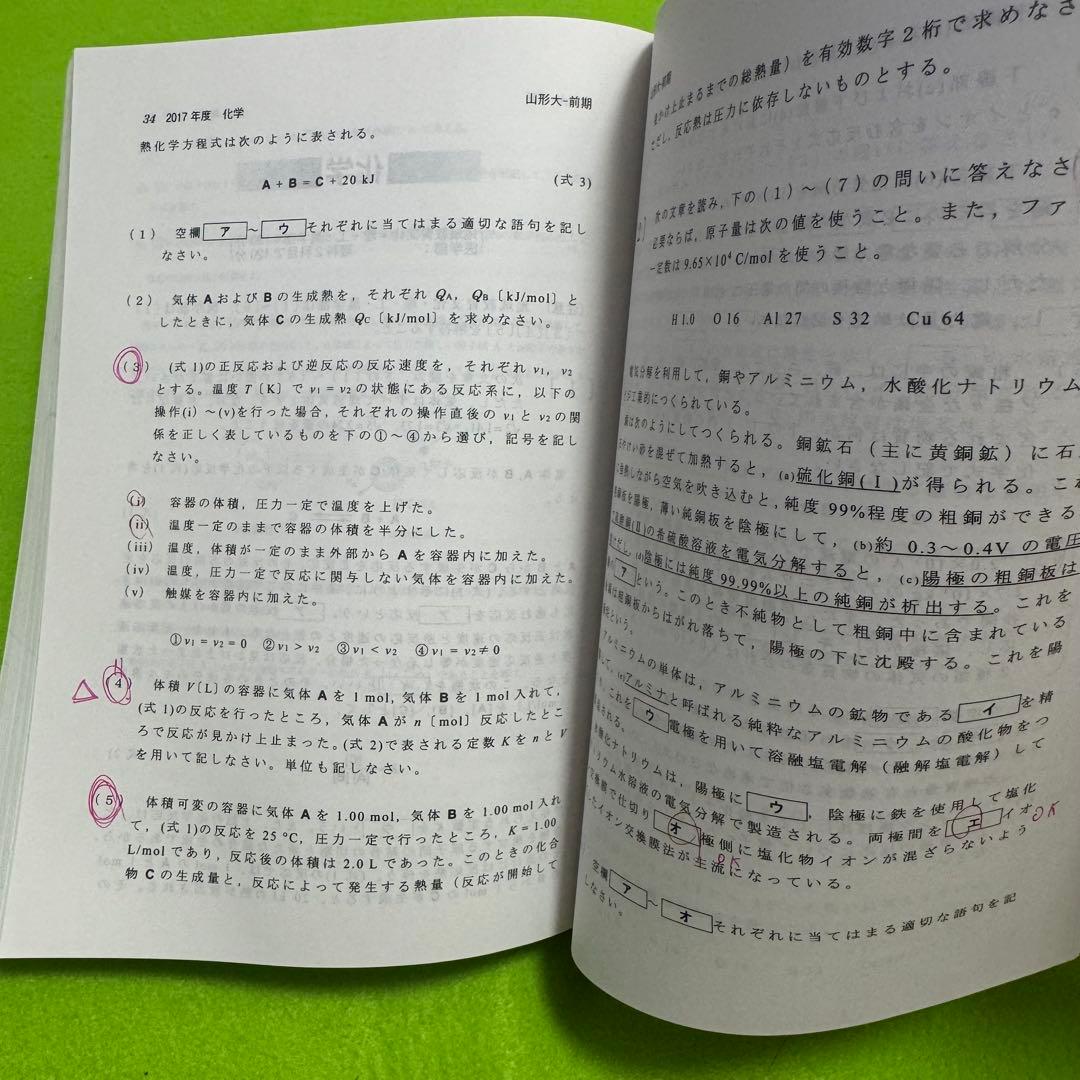 34 2017年度 化学
山形大-前期
熱化学方程式は次のように表される。
A + B = C + 20 kJ (式 3)
(1) 空欄 ア ~ ウ それぞれに当てはまる適切な語句を記し
なさい。
(2) 気体 A および B の生成熱を,それぞれ QA, QB〔kJ/mol〕と
したときに,気体 C の生成熱 QC〔kJ/mol〕を求めなさい。
(3) (式 1)の正反応および逆反応の反応速度を,それぞれ v1, v2
とする。温度 T〔K〕で v1 = v2 の状態にある反応系に,以下の
操作(i)~(v)を行った場合,それぞれの操作直後の v1 と v2 の関
係を正しく表しているものを下の①~④から選び,記号を記し
なさい。
(i) 容器の体積,圧力一定で温度を上げた。
(ii) 温度一定のままで容器の体積を半分にした。
(iii) 温度,体積が一定のまま外部から A を容器内に加えた。
(iv) 温度,圧力一定で反応に関与しない気体を容器内に加えた。
(v) 触媒を容器内に加えた。
① v1 = v2 = 0 ② v1 > v2 ③ v1 < v2 ④ v1 = v2 ≠ 0
(4) 体積 V〔L〕の容器に気体 A を 1 mol, 気体 B を 1 mol 入れて,
(式 1)の反応を行ったところ,気体 A が n〔mol〕反応したとこ
ろで反応が見かけ上止まった。(式 2)で表される定数 K を n と V
を用いて記しなさい。単位も記しなさい。
(5) 体積可変の容器に気体 A を 1.00 mol, 気体 B を 1.00 mol 入れ
て,(式 1)の反応を 25 °C, 圧力一定で行ったところ,K = 1.00
L/mol であり,反応後の体積は 2.0 L であった。このときの化合
物 C の生成量と,反応によって発生する熱量(反応が開始して
山形大-前期
かけ上止まるまでの総熱量)を有効数字2桁で求めなさ
ただし,反応熱は圧力に依存しないものとする。
次の文章を読み,下の(1)~(7)の問いに答えなさ
必要ならば,原子量は次の値を使うこと。また,ファ
定数は 9.65×10⁴ C/mol を使うこと。
H 1.0 O 16 Al 27 S 32 Cu 64
電気分解を利用して,銅やアルミニウム,水酸化ナトリウム
工業的につくられている。
は次のようにしてつくられる。銅鉱石(主に黄銅鉱)に石
けい砂を混ぜて加熱すると,(a)硫化銅(I)が得られる。これ
熱しながら空気を吹き込むと,純度 99%程度の粗銅ができる
銅板を陽極,薄い純銅板を陰極にして,(b)約 0.3~0.4V の電圧
銅(II)の希硫酸溶液を電気分解すると,(c)陽極の粗銅板は
(d)陰極には純度 99.99%以上の純銅が析出する。これを
ア という。このとき不純物として粗銅中に含まれている
は粗銅板からはがれ落ちて,陽極の下に沈殿する。これを陽
という。
アルミニウムの単体は,アルミニウムの鉱物である イ を精
して,(e)アルミナと呼ばれる純粋なアルミニウムの酸化物をつ
これを ウ 電極を用いて溶融塩電解(融解塩電解)して
される。
酸化ナトリウムは,陽極に ウ ,陰極に鉄を使用して塩化
リウム水溶液の電気分解で製造される。両極間を エ イオ
交換膜で仕切り オ 極側に塩化物イオンが混ざらないよう
たイオン交換膜法が主流になっている。
OK
OK
空欄 ア ~ オ それぞれに当てはまる適切な語句を記
しなさい。